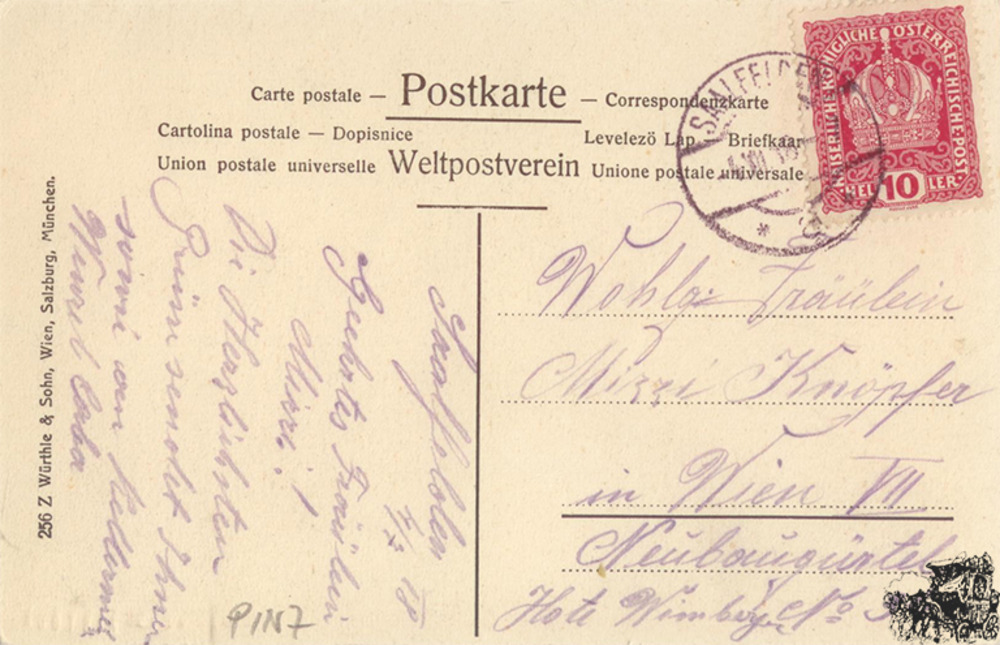 Carte postale — Postkarte — Correspondenzkarte
Cartolina postale — Dopisnice
Levelezö Lap Briefkaar
Union postale universelle Weltpostverein Unione postale universale
KAISERLICHE KÖNIGLICHE ÖSTERREICHISCHE POST
HEL 10 LER
SAALFELDEN
256 Z Würthle & Sohn, Wien, Salzburg, München.
Saalfelden
18
Geehrtes Fräulein
Mizzi!
Die Herzlichsten
Grüsse sendet Ihnen
Wohlg. Fräulein
Mizzi Knöpfer
in Wien VII
Neubaugürtel
Hote Wimberger No
PIN7